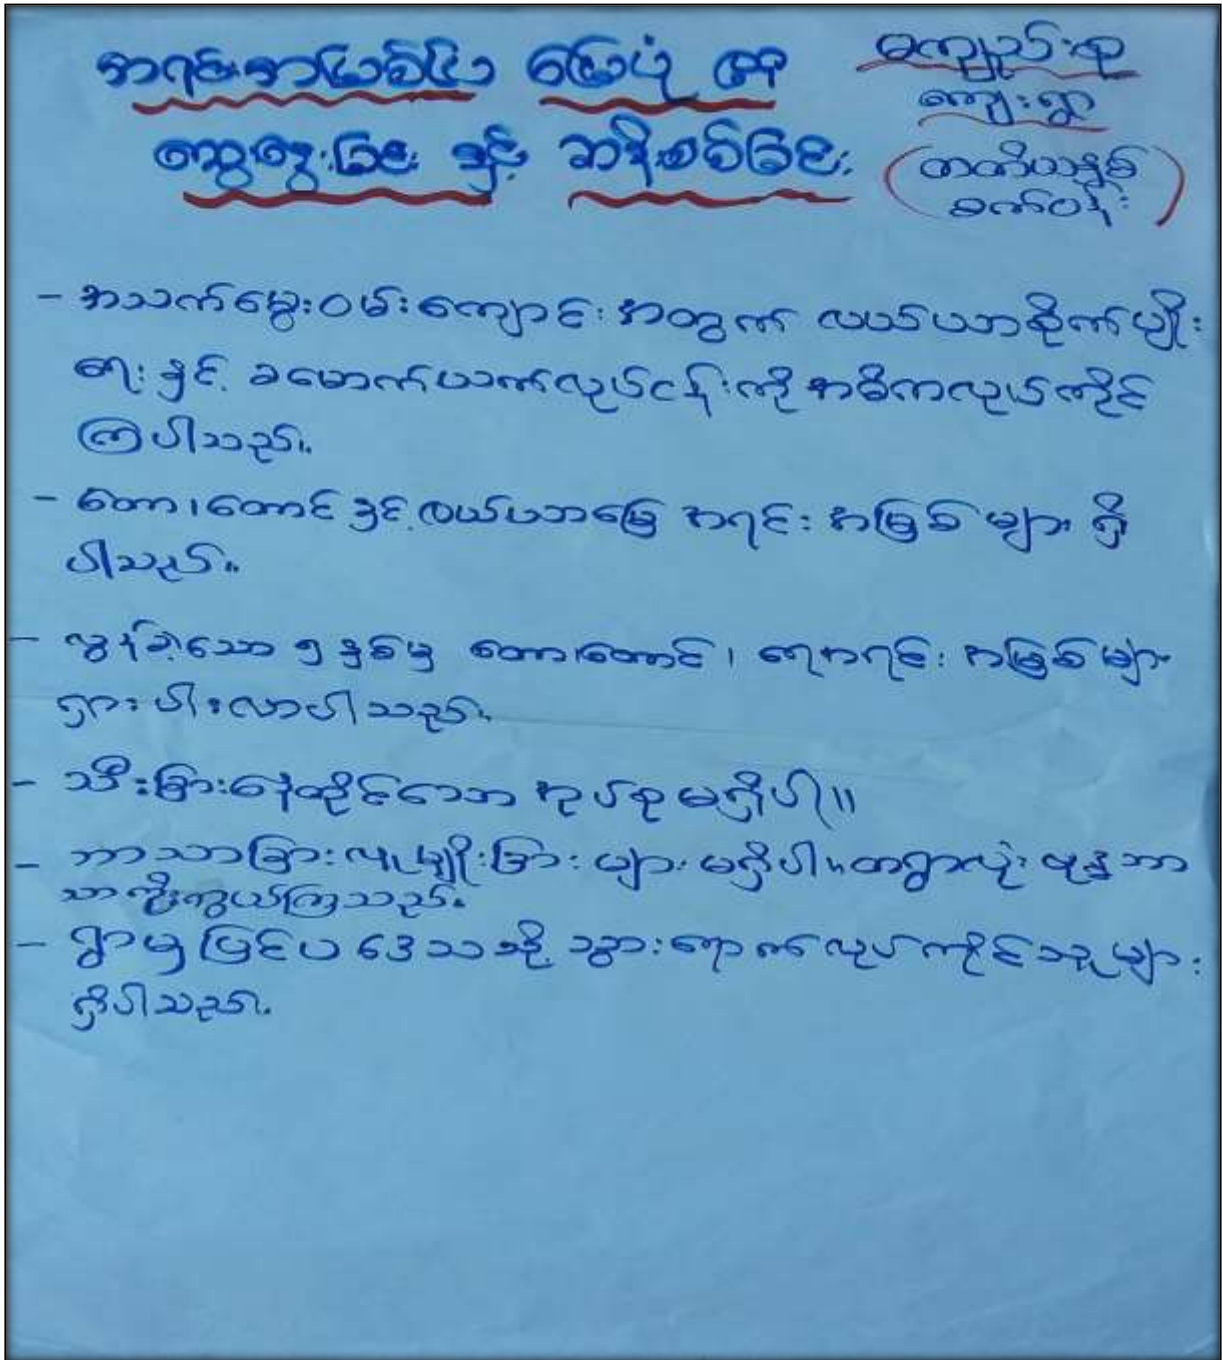 အရင်းအမြစ်ပြ မြေပုံ မှ
ဆွေးနွေးခြင်း နှင့် ဆန်းစစ်ခြင်း
မကျည်းစု
ကျေးရွာ
(တတိယနှစ်
စက်ဝန်း)
- အသက်မွေးဝမ်းကျောင်း အတွက် လယ်ယာစိုက်ပျိုး
ရေး နှင့် ခမောက်ယက်လုပ်ငန်းကို အဓိကလုပ်ကိုင်
ကြပါသည်။
- တော၊တောင် နှင့် လယ်ယာမြေ အရင်း အမြစ် များ ရှိ
ပါသည်။
- လွန်ခဲ့သော ၅ နှစ်မှ တော၊တောင်၊ ရေအရင်း အမြစ် များ
ရှားပါးလာပါသည်။
- သီးခြားနေထိုင်သော အုပ်စု မရှိပါ။
- ဘာသာခြား လူမျိုးခြား များ မရှိပါ။တရွာလုံး ဗုဒ္ဓဘာ
သာ ကိုးကွယ်ကြသည်။
- ရွာမှ ပြင်ပ ဒေသသို့ သွားရောက် လုပ်ကိုင်သူများ
ရှိပါသည်။